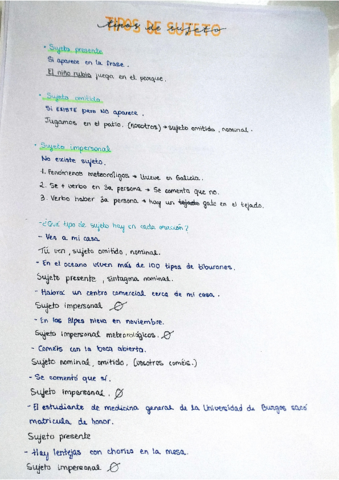 TIPOS DE SUJETO
tipos de sujeto
· Sujeto presente
Si aparece en la frase.
El niño rubio juega en el parque.
· Sujeto omitido
Si EXISTE pero NO aparece.
Jugamos en el patio. (nosotros) → sujeto omitido, nominal.
· Sujeto impersonal
No existe sujeto.
1. Fenómenos meteorológicos → Llueve en Galicia.
2. Se + verbo en 3a persona → Se comenta que no.
3. Verbo haber 3a persona → hay un tejado gato en el tejado.
-¿Qué tipo de sujeto hay en cada oración?
- Ves a mi casa
Tú ven, sujeto omitido, nominal.
- En el océano viven más de 100 tipos de tiburones.
Sujeto presente, sintagma nominal.
- Habrá un centro comercial cerca de mi casa.
Sujeto impersonal ∅
- En los Alpes nieva en noviembre.
Sujeto impersonal meteorológicos. ∅
- Coméis con la boca abierta.
Sujeto nominal, omitido. (vosotros coméis.)
- Se comentó que sí.
Sujeto impersonal. ∅
- El estudiante de medicina general de la Universidad de Burgos sacó
matrícula de honor.
Sujeto presente
- Hay lentejas con chorizo en la mesa.
Sujeto impersonal ∅